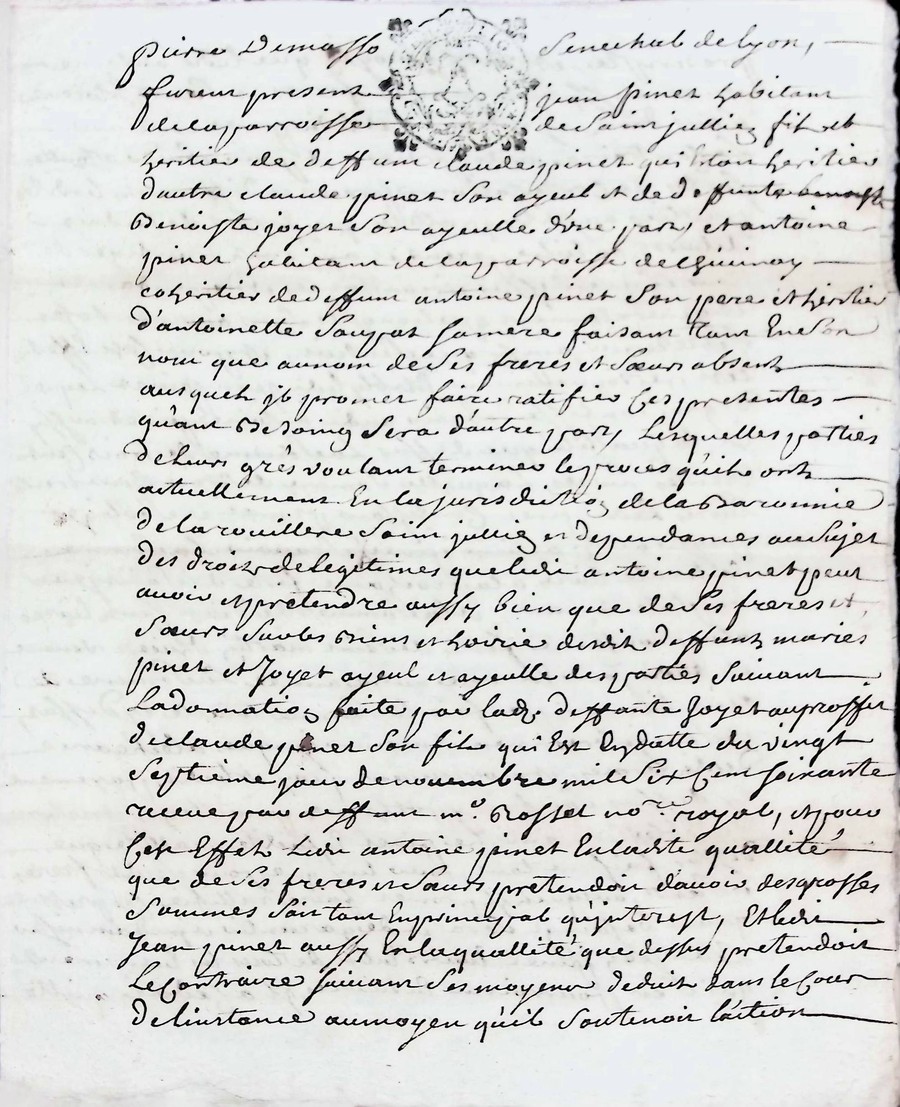 pierre Demasso Senechal de lyon,
furent present jean pinet habitant
de la parroisse de Saint jullien fils et
heritier de deffunt claude pinet qui Estoit heritier
d'autre claude pinet Son ayeul et de deffunte benoiste
Benoiste joyet Son ayeulle d'une part, et antoine
pinet habitant de la parroisse de
coheritier de deffunt antoine pinet Son pere et heritier
d'antoinette Sa mere faisant tant En Son
nom que au nom de Ses freres et Sœurs absents
ausquels il promet faire ratiffier Ces presentes
qu'ant Besoing Sera d'autre part, Lesquelles parties
de leurs grés voulant terminer le proces qu'ils ont
actuellement En la jurisdiction de la Baronnie
de la rouillere Saint jullien et dependances au Sujet
des droits de legitimes que ledit antoine pinet peut
avoir et pretendre aussy bien que de Ses freres et
Sœurs Sur les Biens et hoirie desdits deffunts mariés
pinet et Joyet ayeul et ayeulle des parties Suivant
La donnation faite par lad. deffunte Joyet au proffit
de claude pinet Son fils qui Est En datte du vingt
Septieme jour de novembre mil Six Cent Soixante
receue par deffunt m.e Rosset no.re royal, et pour
Cest Effet Ledit antoine pinet En ladite quallité
que de Ses freres et Sœurs pretendoit d'avoir des grosses
Sommes Soit tant En principal qu'interest, Et ledit
Jean pinet aussy En la quallité que dessus pretendoit
Le Contraire Suivant Ses moyens deduit dans le Cour
de l'instance au moyen qu'il Soutenoit l'action